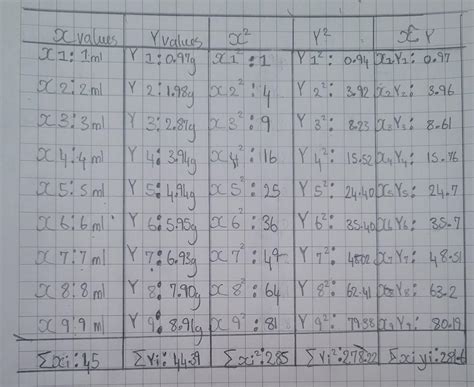 x values Y values x² Y² x Y
x1:1ml Y 1:0.97g x1²:1 Y1²: 0.94 x1Y1: 0.97
x2:2ml Y 2:1.98g x2²:4 Y2²: 3.92 x2Y2: 3.96
x3:3ml Y 3:2.87g x3²:9 Y3²: 8.23 x3Y3: 8.61
x4:4ml Y 4:3.94g x4²:16 Y4²: 15.52 x4Y4: 15.76
x5:5ml Y 5:4.94g x5²:25 Y5²: 24.40 x5Y5: 24.7
x6:6ml Y 6:5.95g x6²:36 Y6²: 35.40 x6Y6: 35.7
x7:7ml Y 7:6.93g x7²:49 Y7²: 48.02 x7Y7: 48.51
x8:8ml Y 8:7.90g x8²:64 Y8²: 62.41 x8Y8: 63.2
x9:9ml Y 9:8.91g x9²:81 Y9²: 79.38 x9Y9: 80.19
Σxi:45 ΣYi:44.39 Σxi²:285 ΣYi²:278.22 Σxiyi: